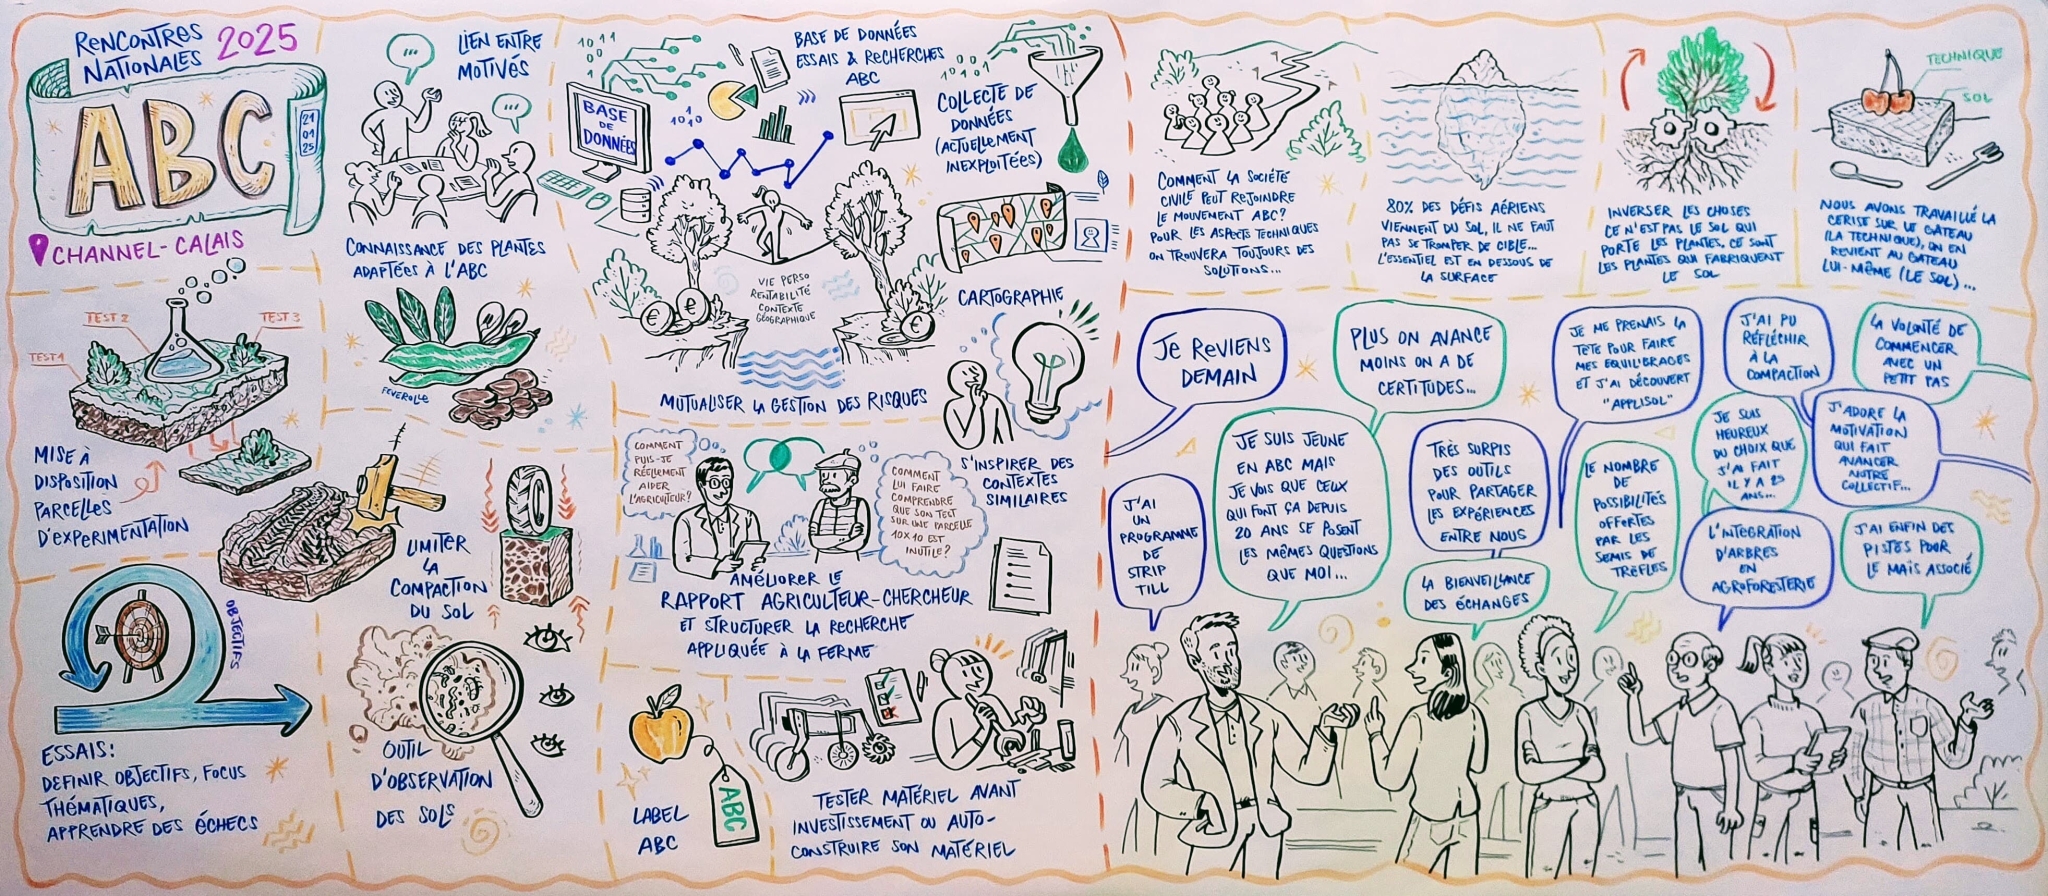 RENCONTRES
NATIONALES
2025
ABC
21
01
25
CHANNEL-CALAIS
TEST 2
TEST 3
TEST 1
MISE À
DISPOSITION
PARCELLES
D'EXPERIMENTATION
OBJECTIFS
ESSAIS:
DEFINIR OBJECTIFS, FOCUS
THÉMATIQUES,
APPRENDRE DES ÉCHECS
LIEN ENTRE
MOTIVÉS
CONNAISSANCE DES PLANTES
ADAPTÉES À L'ABC
FEVEROLLE
LIMITER
LA
COMPACTION
DU SOL
OUTIL
D'OBSERVATION
DES SOLS
1011
BASE
DE
DONNÉES
1010
BASE DE DONNÉES
ESSAIS & RECHERCHES
ABC
COLLECTE DE
DONNÉES
(ACTUELLEMENT
INEXPLOITÉES)
VIE PERSO
RENTABILITÉ
CONTEXTE
GÉOGRAPHIQUE
MUTUALISER LA GESTION DES RISQUES
CARTOGRAPHIE
S'INSPIRER DES
CONTEXTES
SIMILAIRES
COMMENT
PUIS-JE
RÉELLEMENT
AIDER
L'AGRICULTEUR?
COMMENT
LUI FAIRE
COMPRENDRE
QUE SON TEST
SUR UNE PARCELLE
10X10 EST
INUTILE?
AMÉLIORER LE
RAPPORT AGRICULTEUR-CHERCHEUR
ET STRUCTURER LA RECHERCHE
APPLIQUÉE À LA FERME
LABEL
ABC
ABC
TESTER MATÉRIEL AVANT
INVESTISSEMENT OU AUTO-
CONSTRUIRE SON MATÉRIEL
COMMENT LA SOCIÉTÉ
CIVILE PEUT REJOINDRE
LE MOUVEMENT ABC?
POUR LES ASPECTS TECHNIQUES
ON TROUVERA TOUJOURS DES
SOLUTIONS...
80% DES DÉFIS AÉRIENS
VIENNENT DU SOL, IL NE FAUT
PAS SE TROMPER DE CIBLE...
L'ESSENTIEL EST EN DESSOUS DE
LA SURFACE
INVERSER LES CHOSES
CE N'EST PAS LE SOL QUI
PORTE LES PLANTES, CE SONT
LES PLANTES QUI FABRIQUENT
LE SOL
TECHNIQUE
SOL
NOUS AVONS TRAVAILLÉ LA
CERISE SUR LE GÂTEAU
(LA TECHNIQUE), ON EN
REVIENT AU GATEAU
LUI-MÊME (LE SOL)...
JE REVIENS
DEMAIN
PLUS ON AVANCE
MOINS ON A DE
CERTITUDES...
JE ME PRENAIS LA
TÊTE POUR FAIRE
MES EQUILIBRAGES
ET J'AI DÉCOUVERT
"APPLISOL"
J'AI PU
RÉFLÉCHIR
À LA
COMPACTION
LA VOLONTÉ DE
COMMENCER
AVEC UN
PETIT PAS
J'AI
UN
PROGRAMME
DE
STRIP
TILL
JE SUIS JEUNE
EN ABC MAIS
JE VOIS QUE CEUX
QUI FONT ÇA DEPUIS
20 ANS SE POSENT
LES MÊMES QUESTIONS
QUE MOI...
TRÈS SURPIS
DES OUTILS
POUR PARTAGER
LES EXPÉRIENCES
ENTRE NOUS
LA BIENVEILLANCE
DES ÉCHANGES
LE NOMBRE
DE
POSSIBILITÉS
OFFERTES
PAR LES
SEMIS DE
TRÈFLES
JE SUIS
HEUREUX
DU CHOIX QUE
J'AI FAIT
IL Y A 25
ANS...
J'ADORE LA
MOTIVATION
QUI FAIT
AVANCER
NOTRE
COLLECTIF...
L'INTEGRATION
D'ARBRES
EN
AGROFORESTERIE
J'AI ENFIN DES
PISTES POUR
LE MAÏS ASSOCIÉ